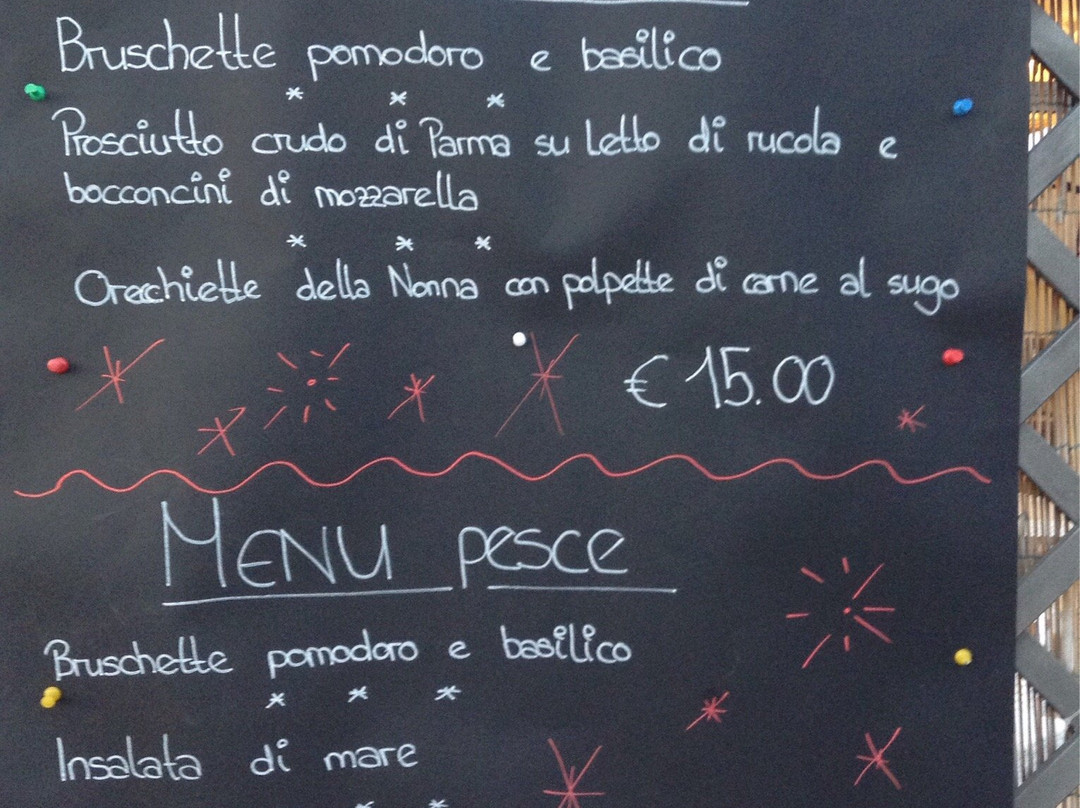 Bruschette pomodoro e basilico
* * *
Prosciutto crudo di Parma su letto di rucola e
bocconcini di mozzarella
* * *
Orecchiette della Nonna con polpette di carne al sugo
€ 15.00
MENU pesce
Bruschette pomodoro e basilico
* * *
Insalata di mare